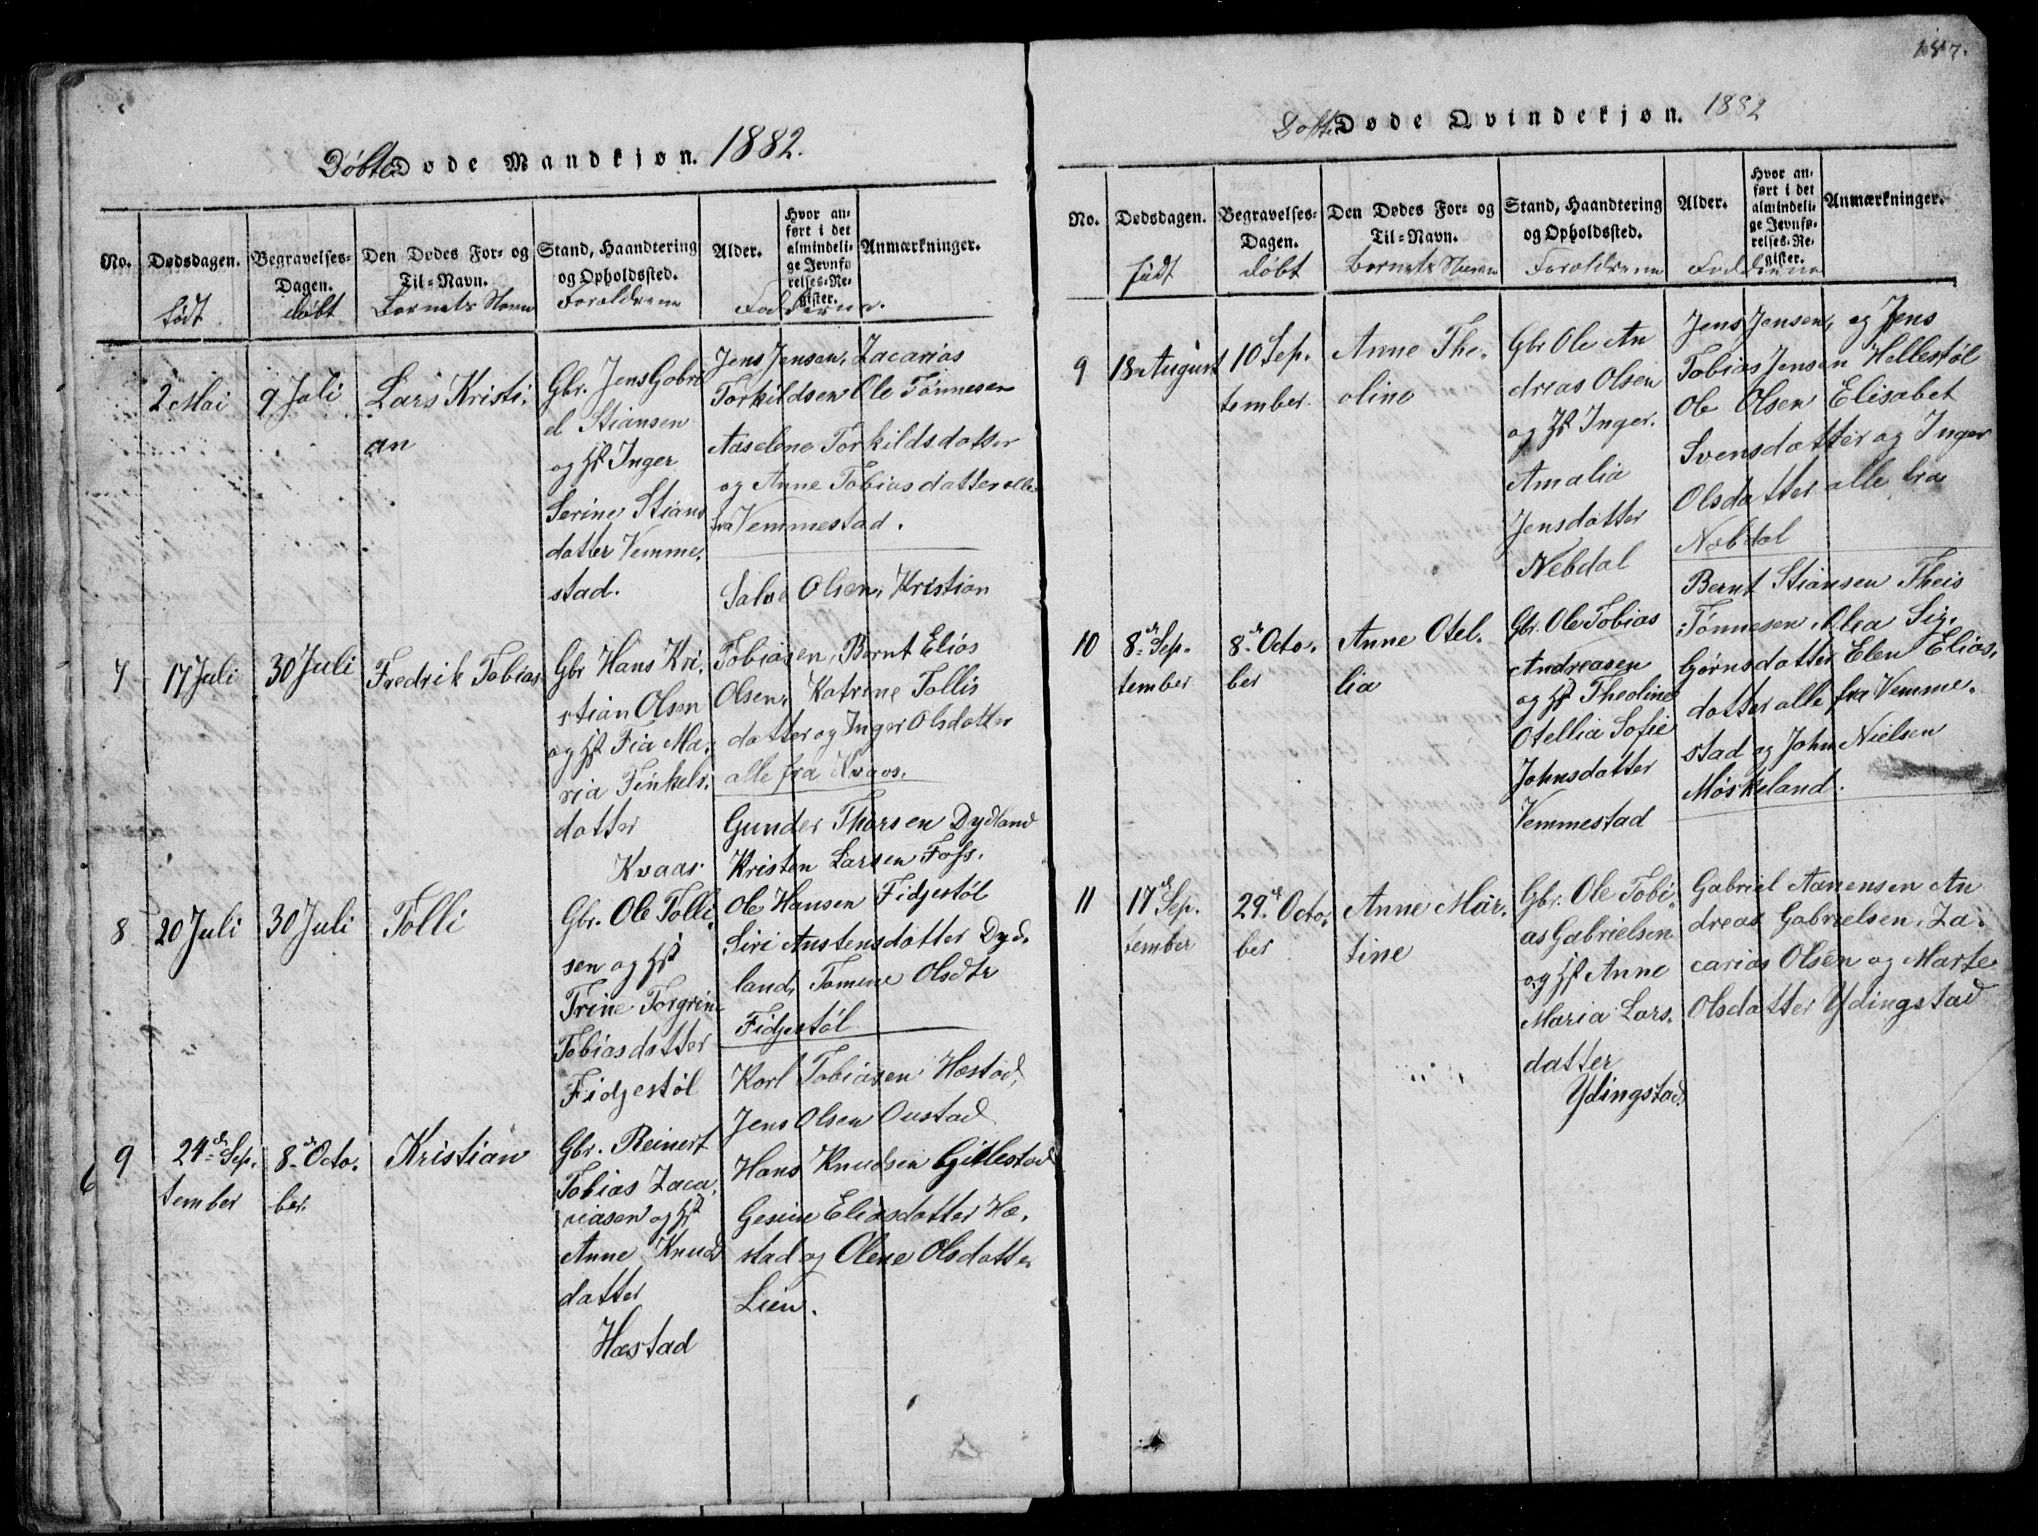 Døbte Døde Mandkjøn. 1882.
No.
Dødsdagen.
født
Begravelses-
Dagen.
døbt
Den Dødes For- og
Til-Navn.
Barnets Navn
Stand, Haandtering
og Opholdssted.
Forældrene
Alder.
Hvor an-
ført i det
almindeli-
ge Jevnfø
relses-Re-
gister.
Anmærkninger.
Fadderne.
2 Mai
9 Juli
Lars Kristi-
an
Gbr. Jens Gabri
el Stiansen
og Hst Inger
Serine Stians
datter Vemme-
stad.
Jens Jensen, Zacarias
Torkildsen Ole Tønnesen
Aaselene Torkildsdatter
og Anne Tobiasdatter alle
fra Vemmestad.
7
17 Juli
30 Juli
Fredrik Tobias
Gbr Hans Kri-
stian Olsen
og Hst Fia Ma-
ria Tinkels-
datter
Kvaas
Salve Olsen, Kristian
Tobiasen, Bernt Elias
Olsen, Katrine Tollis
datter og Inger Olsdatter
alle fra Kvaas.
8
20 Juli
30 Juli
Tolli
Gbr. Ole Tolli-
sen og Hst
Trine Torgrine
Tobiasdatter
Fidjestøl
Gunder Thorsen Dydland
Kristen Larsen Foss.
Ole Hansen Fidjestøl
Siri Austensdatter Dyd-
land, Tomine Olsdtr
Fidjestøl
9
24de Sep-
tember
8de Octo-
ber.
Kristian
Gbr. Reinert
Tobias Zaca-
riasen og Hst
Anne Knuds
datter
Hæstad
Karl Tobiasen Hæstad,
Jens Olsen Oustad
Hans Knudsen Gitlestad
Gesine Eliasdatter Hæ-
stad og Olene Olsdatter
Lien.
6
187.
Døbte Døde Qvindekjøn. 1882
No.
Dødsdagen.
født
Begravelses-
Dagen.
døbt
Den Dødes For- og
Til-Navn.
Barnets Navn
Stand, Haandtering
og Opholdssted.
Forældrene
Alder.
Hvor an-
ført i det
almindeli-
ge Jevnfø-
relses-Re-
gister.
Anmærkninger.
Fadderne
9
18 August
10 Sep-
tember
Anne The-
oline
Gbr Ole An
dreas Olsen
og Hst Inger
Amalia
Jensdatter
Nebdal
Jens Jensen, og Jens
Tobias Jensen Hellestøl
Ole Olsen Elisabet
Svensdatter og Inger
Olsdatter alle fra
Nebdal
10
8de Sep-
tember
8de Octo-
ber
Anne Otel-
lia
Gbr. Ole Tobias
Andreasen
og Hst Theoline
Otellia Sofie
Johnsdatter
Vemmestad
Bernt Stiansen Theis
Tønnesen Alea Sig-
bjørnsdatter Elen Elias-
datter alle fra Vemme-
stad og John Nielsen
Møskeland.
11
17de Sep-
tember
29de Octo-
ber
Anne Mar-
tine
Gbr. Ole Tobi-
as Gabrielsen
og Hst Anne
Maria Lars-
datter
Ydingstad
Gabriel Aanensen An
dreas Gabrielsen, Za-
carias Olsen og Marte
Olsdatter Ydingstad